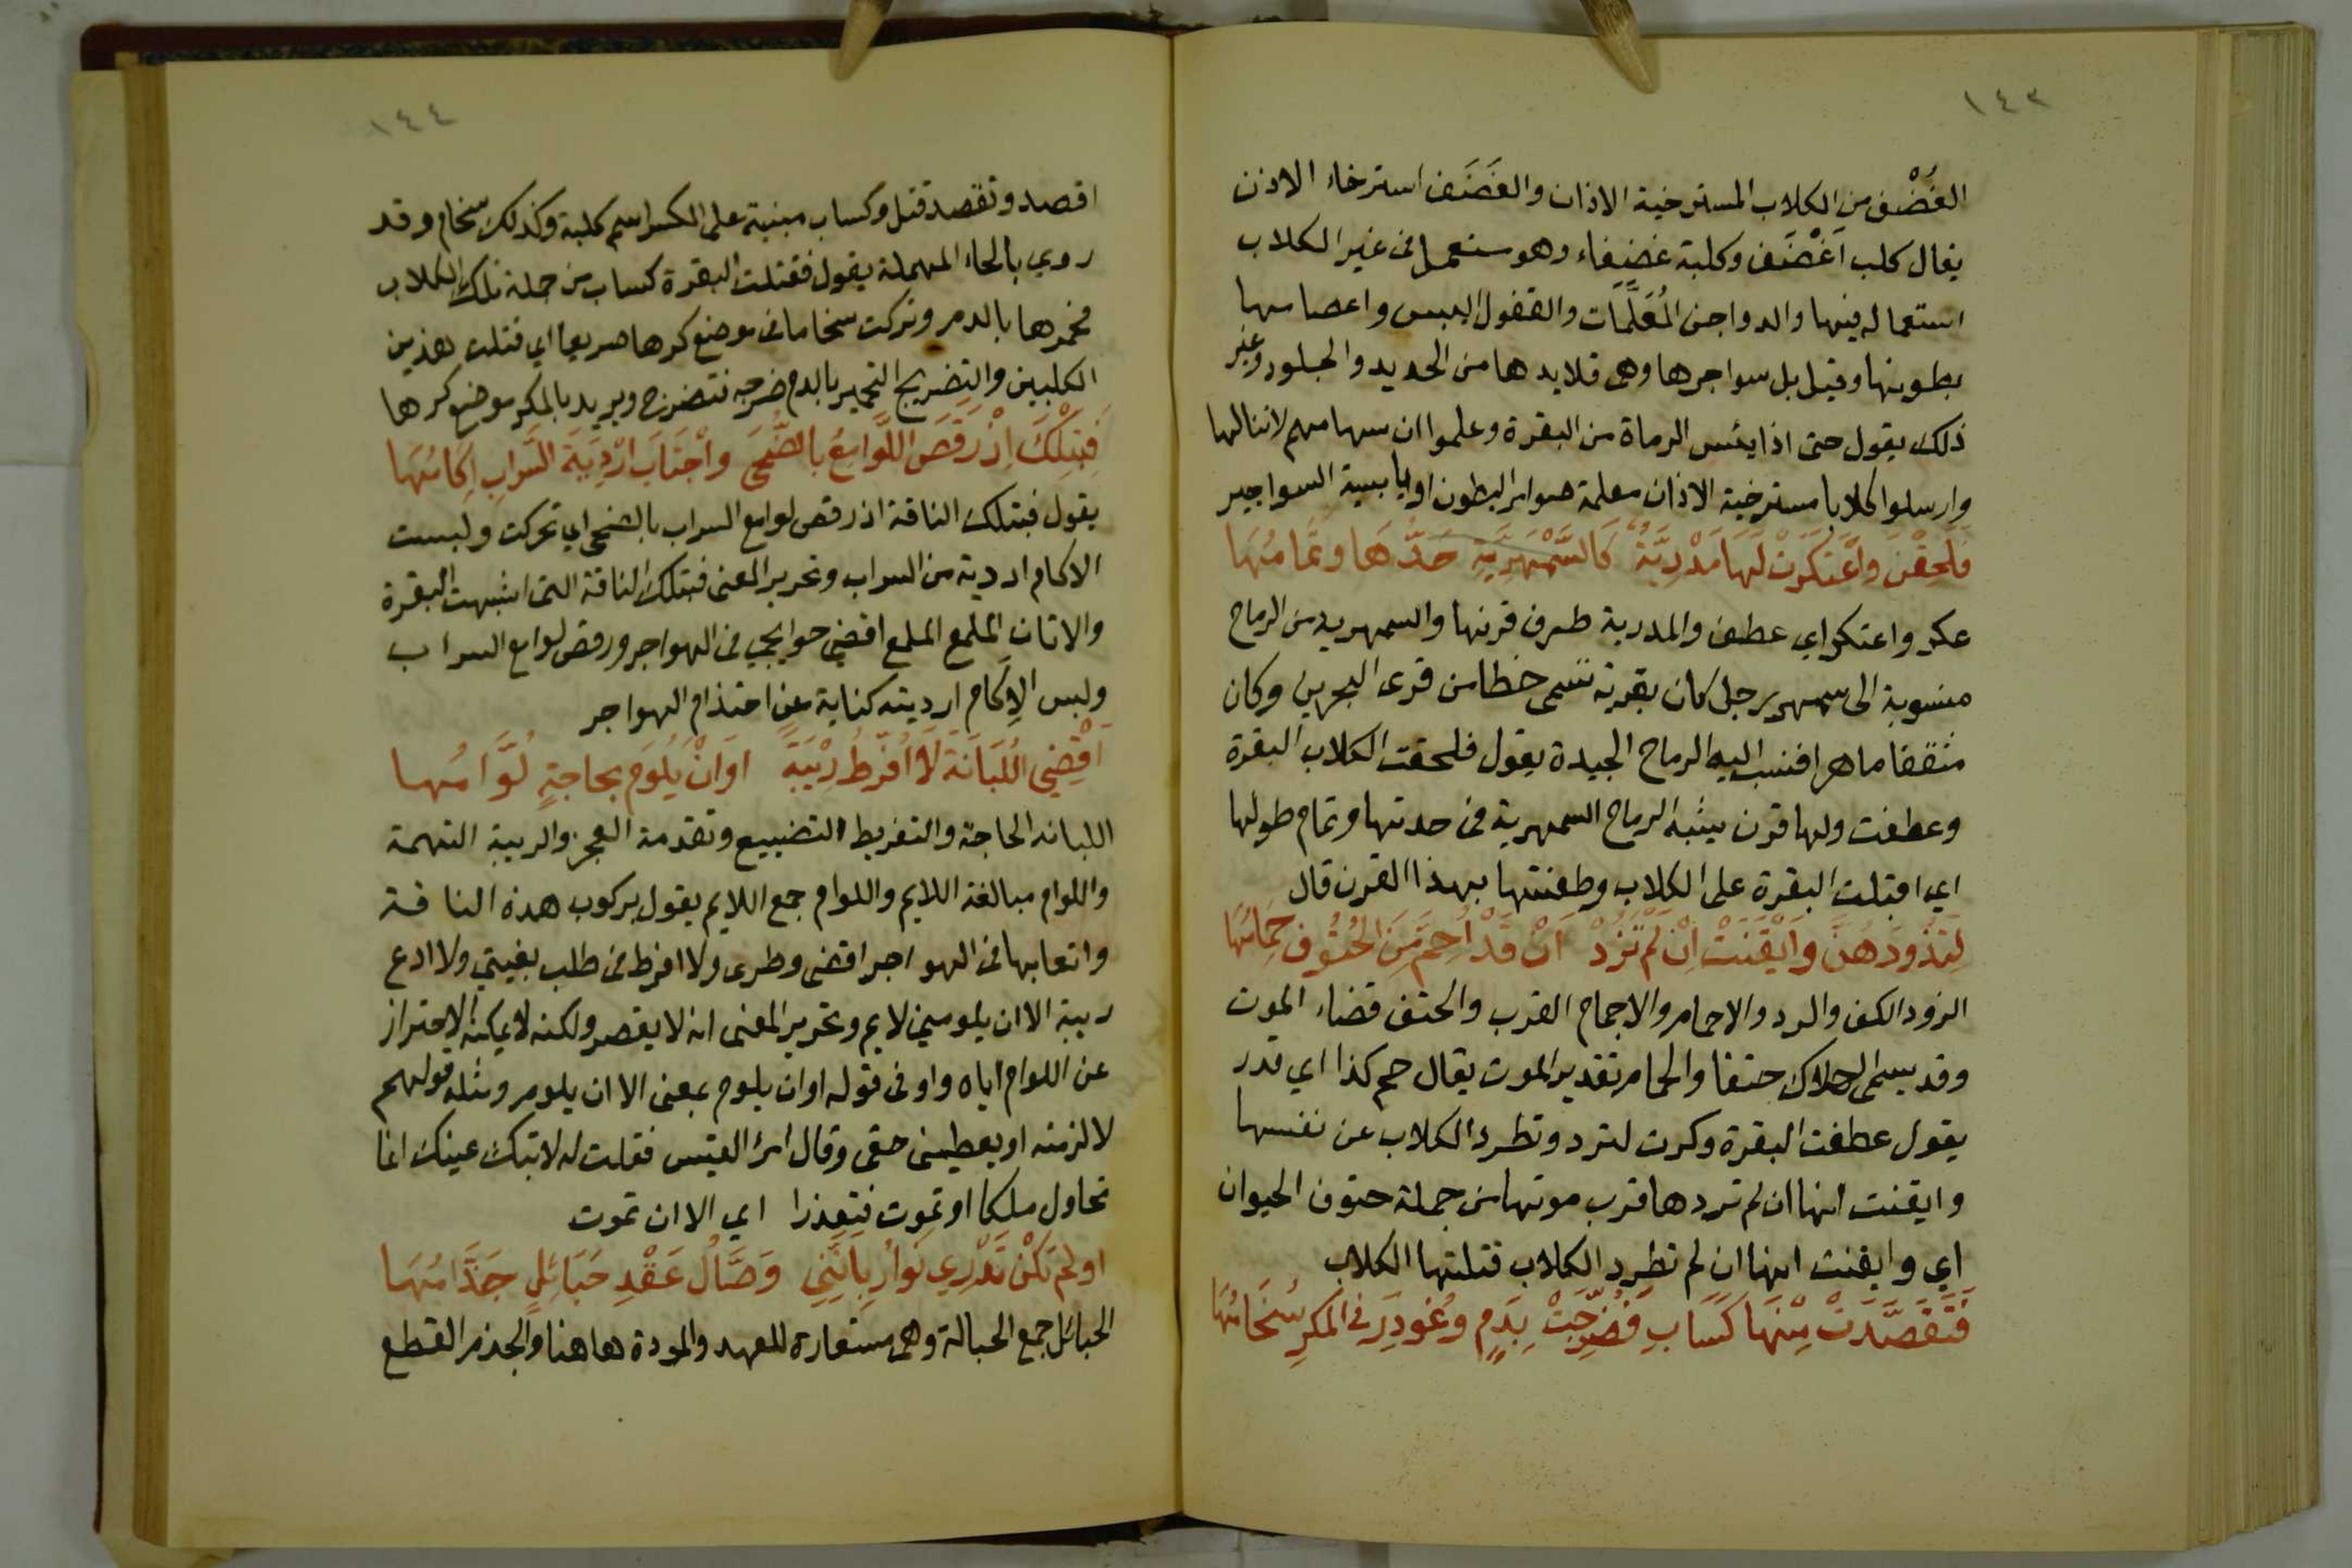 ١٤٣
الغُضْف من الكلاب المسترخية الاذان والغَضَف استرخاء الاذن
يقال كلب اَغْضَف وكلبة غضفاء وهو مستعمل فى غير الكلاب
استعماله فيها والدواجن المُعَلَّمَات والقفول اليبس واعصامها
بطونها وقيل بل سواجرها وهى قلايدها من الحديد والجلود وغير
ذلك يقول حتى اذا يئس الرماة من البقرة وعلموا ان سهامهم لاتنالها
وارسلوا كلابا مسترخية الاذان معلمة ضوامر البطون او يابسية السواجير
فَلَحِقْنَ وَاعْتَكَرَتْ لَهَا مَدْرِيَّةٌ كَالسَّمْهَرِيَّةِ حَدُّهَا وَتَمَامُهَا
عكر واعتكر اي عطف والمدرية طرف قرنها والسمهرية من الرماح
منسوبة الى سمهر رجل كان بقرية تسمى خطا من قرى البحرين وكان
مثقفا ماهرا فنسب اليه الرماح الجيدة يقول فلحقت الكلاب البقرة
وعطفت ولها قرن يشبه الرماح السمهرية فى حدتها وتمام طولها
اي اقبلت البقرة على الكلاب وطعنتها بهذا القرن قال
لِتَذُودَهُنَّ وَاَيْقَنَتْ اِنْ لَمْ تَزُدْ اَنْ قَدْ اُحِمَّ مِنَ الحُتُوفِ حِمَامُهَا
الزود الكف والرد والاحمام والاجمام القرب والحتف قضاء الموت
وقد يسمى الهلاك حتفا والحمام تقدير الموت يقال حم كذا اي قدر
يقول عطفت البقرة وكرت لترد وتطرد الكلاب عن نفسها
وايقنت انها ان لم تردها قرب موتها من جملة حتوف الحيوان
اي وايقنت انها ان لم تطرد الكلاب قتلتها الكلاب
فَتَقَصَّدَتْ مِنْهَا كَسَابِ فَضُرِّجَتْ بِدَمٍ وَغُودِرَ فى المَكَرِّ سُخَامُهَا
١٤٤
اقصد وتقصد قتل وكساب مبنية على الكسر اسم كلبة وكذلك سخام وقد
روي بالحاء المهملة يقول فقتلت البقرة كساب من جملة تلك الكلاب
فحمرها بالدم وتركت سخاما فى موضع كرها صريعا اي قتلت هذين
الكلبين والتضريج التحمير بالدم ضرجه فتضرج ويريد بالمكر موضع كرها
فَبِتِلْكَ اِذْ رَقَصَ اللَّوَامِعُ بِالضُّحَى وَاجْتَابَ اَرْدِيَةَ السَّرَابِ اِكَامُهَا
يقول فبتلك الناقة اذ رقص لوامع السراب بالضحى اي تحركت ولبست
الاكام اردية من السراب وتحرير المعنى فبتلك الناقة التى اشبهت البقرة
والاتان الملمع الملمع اقضي حوايجي فى الهواجر ورقص لوامع السراب
ولبس الاِكَام ارديته كناية عن احتدام الهواجر
اَقْضِي اللُّبَانَةَ لَا اُفَرِّطُ رِيْبَةً اَوْ اَنْ يَلُومَ بحاجةٍ لُوَّامُها
اللبانه الحاجة والتفريط التضييع وتقدمة العجز والريبة التهمة
واللوام مبالغة اللايم واللوام جمع اللايم يقول بركوب هذه الناقة
واتعابها فى الهواجر اقضى وطرى ولا افرط فى طلب بغيتي ولا ادع
ريبة الا ان يلومني لايم وتحرير المعنى انه لا يقصر ولكنه لا يمكنه الاحتراز
عن اللوام اياه واو فى قوله او ان يلوم بمعنى الا ان يلوم ومثله قولهم
لالزمنه او يعطيني حقى وقال امرؤ القيس فقلت له لا تبك عينك انما
نحاول ملكا او نموت فنعذرا اي الا ان نموت
اولم تَكُنْ تَدْرِي نَوَارِ بِاَنَّنِي وَصَّالُ عَقْدِ حَبَائِلٍ جَذَّامُهَا
الحبائل جمع الحبالة وهى مستعارة للعهد والمودة هاهنا والجذم القطع